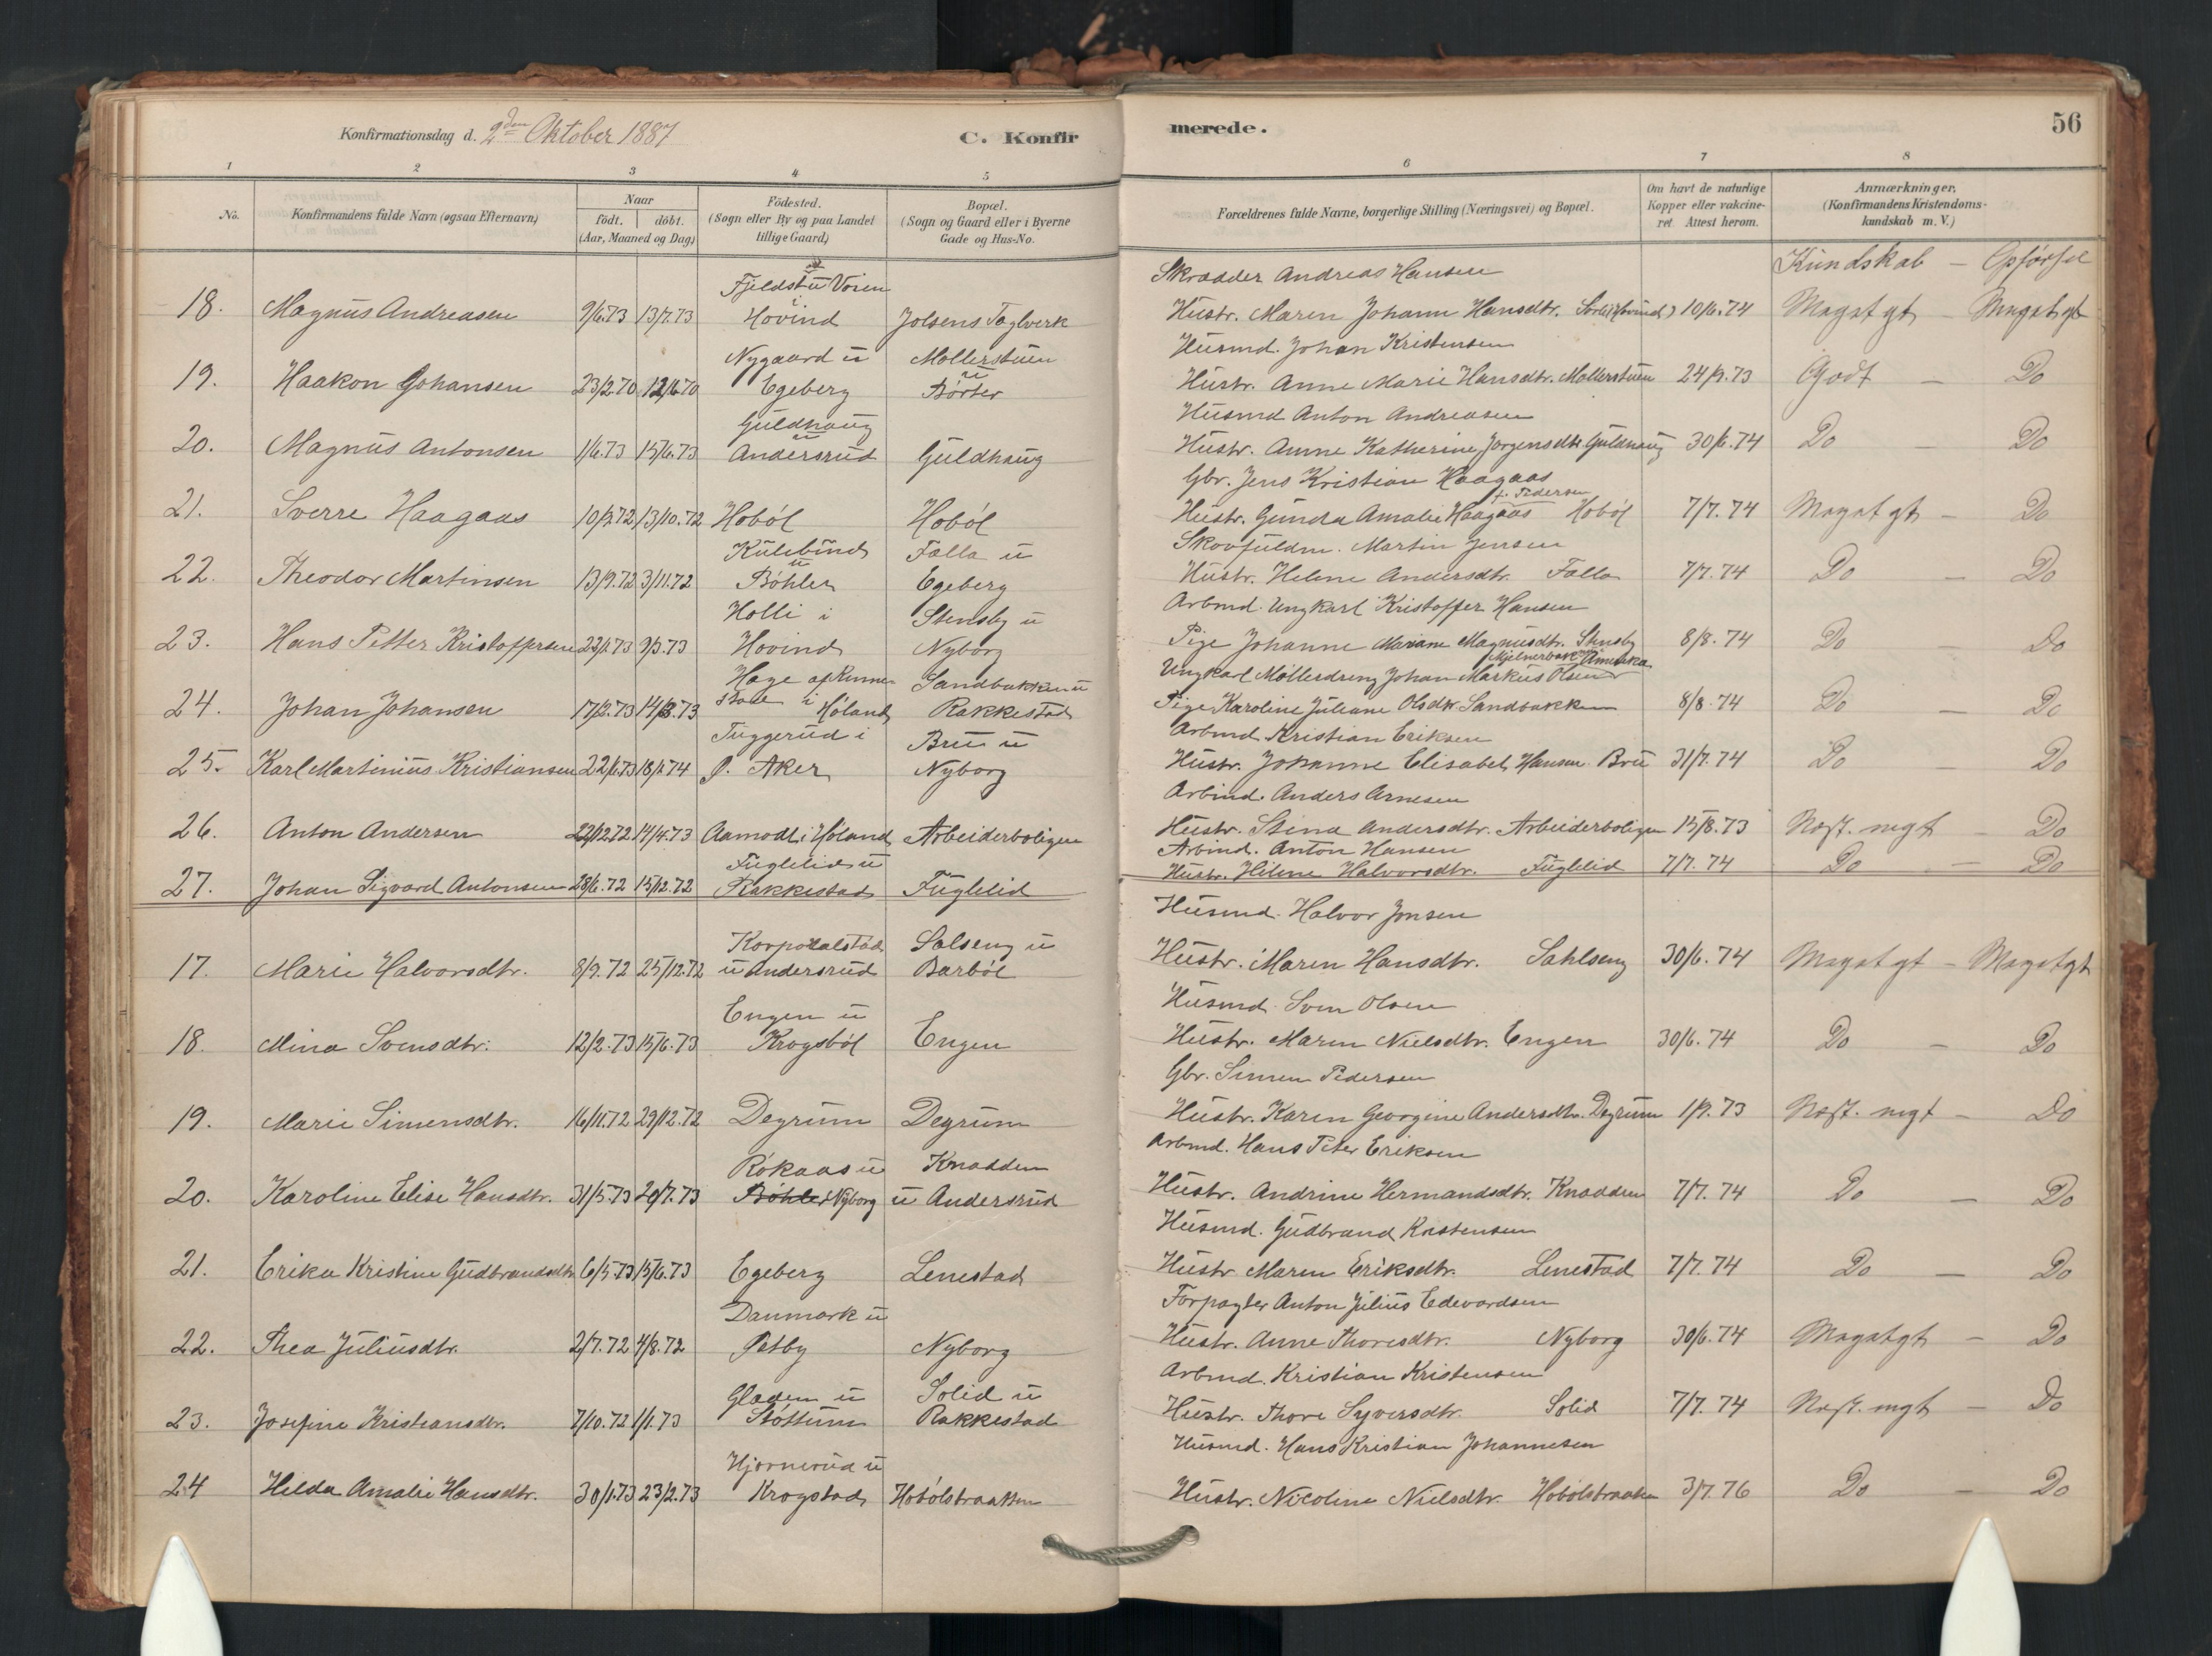 Konfirmationsdag d. 2den Oktober 1887
C. Konfirmerede.
56
1 2 3 4 5 6 7 8
No.
Konfirmandens fulde Navn (ogsaa Efternavn)
Naar
født. døbt.
(Aar, Maaned og Dag)
Fødested.
(Sogn eller By og paa Landet
tillige Gaard)
Bopæl.
(Sogn og Gaard eller i Byerne
Gade og Hus-No.
Forældrenes fulde Navne, borgerlige Stilling (Næringsvei) og Bopæl.
Om havt de naturlige
Kopper eller vakcine-
ret Attest herom.
Anmærkninger.
(Konfirmandens Kristendoms-
kundskab m. V.)
Kundskab – Opførsel
Skrædder Andreas Hansen
18. Magnus Andreasen 9/6.73 13/7.73 Hovind Jolsens Teglverk Hustr. Maren Johanne Hansdtr. 10/6.74 Megetgt – Megetgt
Nygaard u Mollerstuen Husmd. Johan Kristensen
19. Haakon Johansen 23/2.70 12/6.70 Egeberg u Börter Hustr. Anne Marie Hansdtr. Mollerstuen 24/9.73 Godt – Do
Guldhaug Husmd Anton Andreasen
20. Magnus Antonsen 1/6.73 15/6.73 u Andersrud Guldhaug Hustr. Anne Katherine Jørgensdtr. Guldhaug 30/6.74 Do – Do
Gbr. Jens Kristian Haagaas
f. Pedersen
21. Sverre Haagaas 10/9.72 13/10.72 Hobøl Hobøl Hustr. Gunda Amalie Haagaas Hobøl 7/7.74 Megetgt – Do
Kulebund Falla u Skovfuldm. Martin Jensen
22. Theodor Martinsen 13/9.72 3/11.72 u Bøhler Egeberg Hustr. Helene Andersdtr. Falla 7/7.74 Do – Do
Holli i Stensby u Arbmd. Ungkarl Kristoffer Hansen
23. Hans Petter Kristoffersen 23/1.73 9/3.73 Hovind Nyborg Pige Johanne Mariane Magnusdtr. Stensby 8/8.74 Do Do
Hage af Sandbakken u Ungkarl Møllerdreng Johan Markus Olsen Amerika
24. Johan Johansen 17/2.73 14/3.73 i Høland Rakkestad Pige Karoline Juliane Olsdtr. Sandbakken 8/8.74 Do – Do
Tuggerud i Bru u Arbmd. Kristian Eriksen
25. Karl Martinius Kristiansen 22/6.73 18/1.74 Ø. Aker Nyborg Hustr. Johanne Elisabet Hansen Bru 31/7.74 Do – Do
Arbmd. Anders Arnesen
26. Anton Andersen 22/12.72 14/4.73 Aamodt i Høland Arbeiderboligen Hustr. Stina Andersdtr. Arbeiderboligen 15/8.73 Næst. mgt – Do
Fuglelid u Arbmd. Anton Hansen
27. Johan Sigvard Antonsen 28/6.72 15/12.72 Rakkestad Fuglelid Hustr. Helene Halvorsdtr. Fuglelid 7/7.74 Do – Do
Korporalstad Salseng u Husmd. Halvor Jonsen
17. Marie Halvorsdtr. 8/9.72 25/12.72 u Andersrud Barbøl Hustr. Maren Hansdtr. Sahlseng 30/6.74 Megetgt – Megetgt
Engen u Husmd. Sven Olsen
18. Mina Svensdtr. 12/2.73 15/6.73 Krogsbøl Engen Hustr. Maren Nielsdtr. Engen 30/6.74 Do – Do
Gbr. Simen Pedersen
19. Marie Simensdtr. 16/11.72 29/12.72 Degrum Degrum Hustr. Karen Georgine Andersdtr. Degrum 1/9.73 Næst. mgt – Do
Røkaas u Knadden Arbmd. Hans Peter Eriksen
20. Karoline Elise Hansdtr. 31/5.73 20/7.73 Bøhler Nyborg u Andersrud Hustr. Andrine Hermandsdtr. Knadden 7/7.74 Do – Do
Husmd. Gudbrand Kristensen
21. Erika Kristine Gudbrandsdtr. 6/5.73 15/6.73 Egeberg Lenestad Hustr Maren Eriksdtr. Lenestad 7/7.74 Do – Do
Danmark u Forpagter Anton Julius Edevardsen
22. Thea Juliusdtr. 2/7.72 4/8.72 Østby Nyborg Hustr. Anne Thoresdtr. Nyborg 30/6.74 Megetgt – Do
Gladen u Solid u Arbmd. Kristian Kristensen
23. Josefine Kristiansdtr. 7/10.72 1/1.73 Støttum Rakkestad Hustr. Thore Syversdtr. Solid 7/7.74 Næst. mgt – Do
Hjørnerud u Husmd. Hans Kristian Johannesen
24 Hilda Amalie Hansdtr. 30/1.73 23/2.73 Krogstad Hobølstrøkken Hustr. Nicoline Nielsdtr. 3/7.76 Do – Do